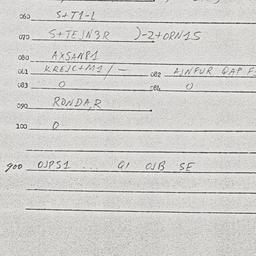 060 S+T1-L
070 S+TEJN3R )-2+ORN1S
080 AXSAN81
081 KREJC+M1/- 082 AJNFUR QAP F
083 0 084 0
090 RONDA,R
100 0
900 OJPS1 ... G1 OJB SE